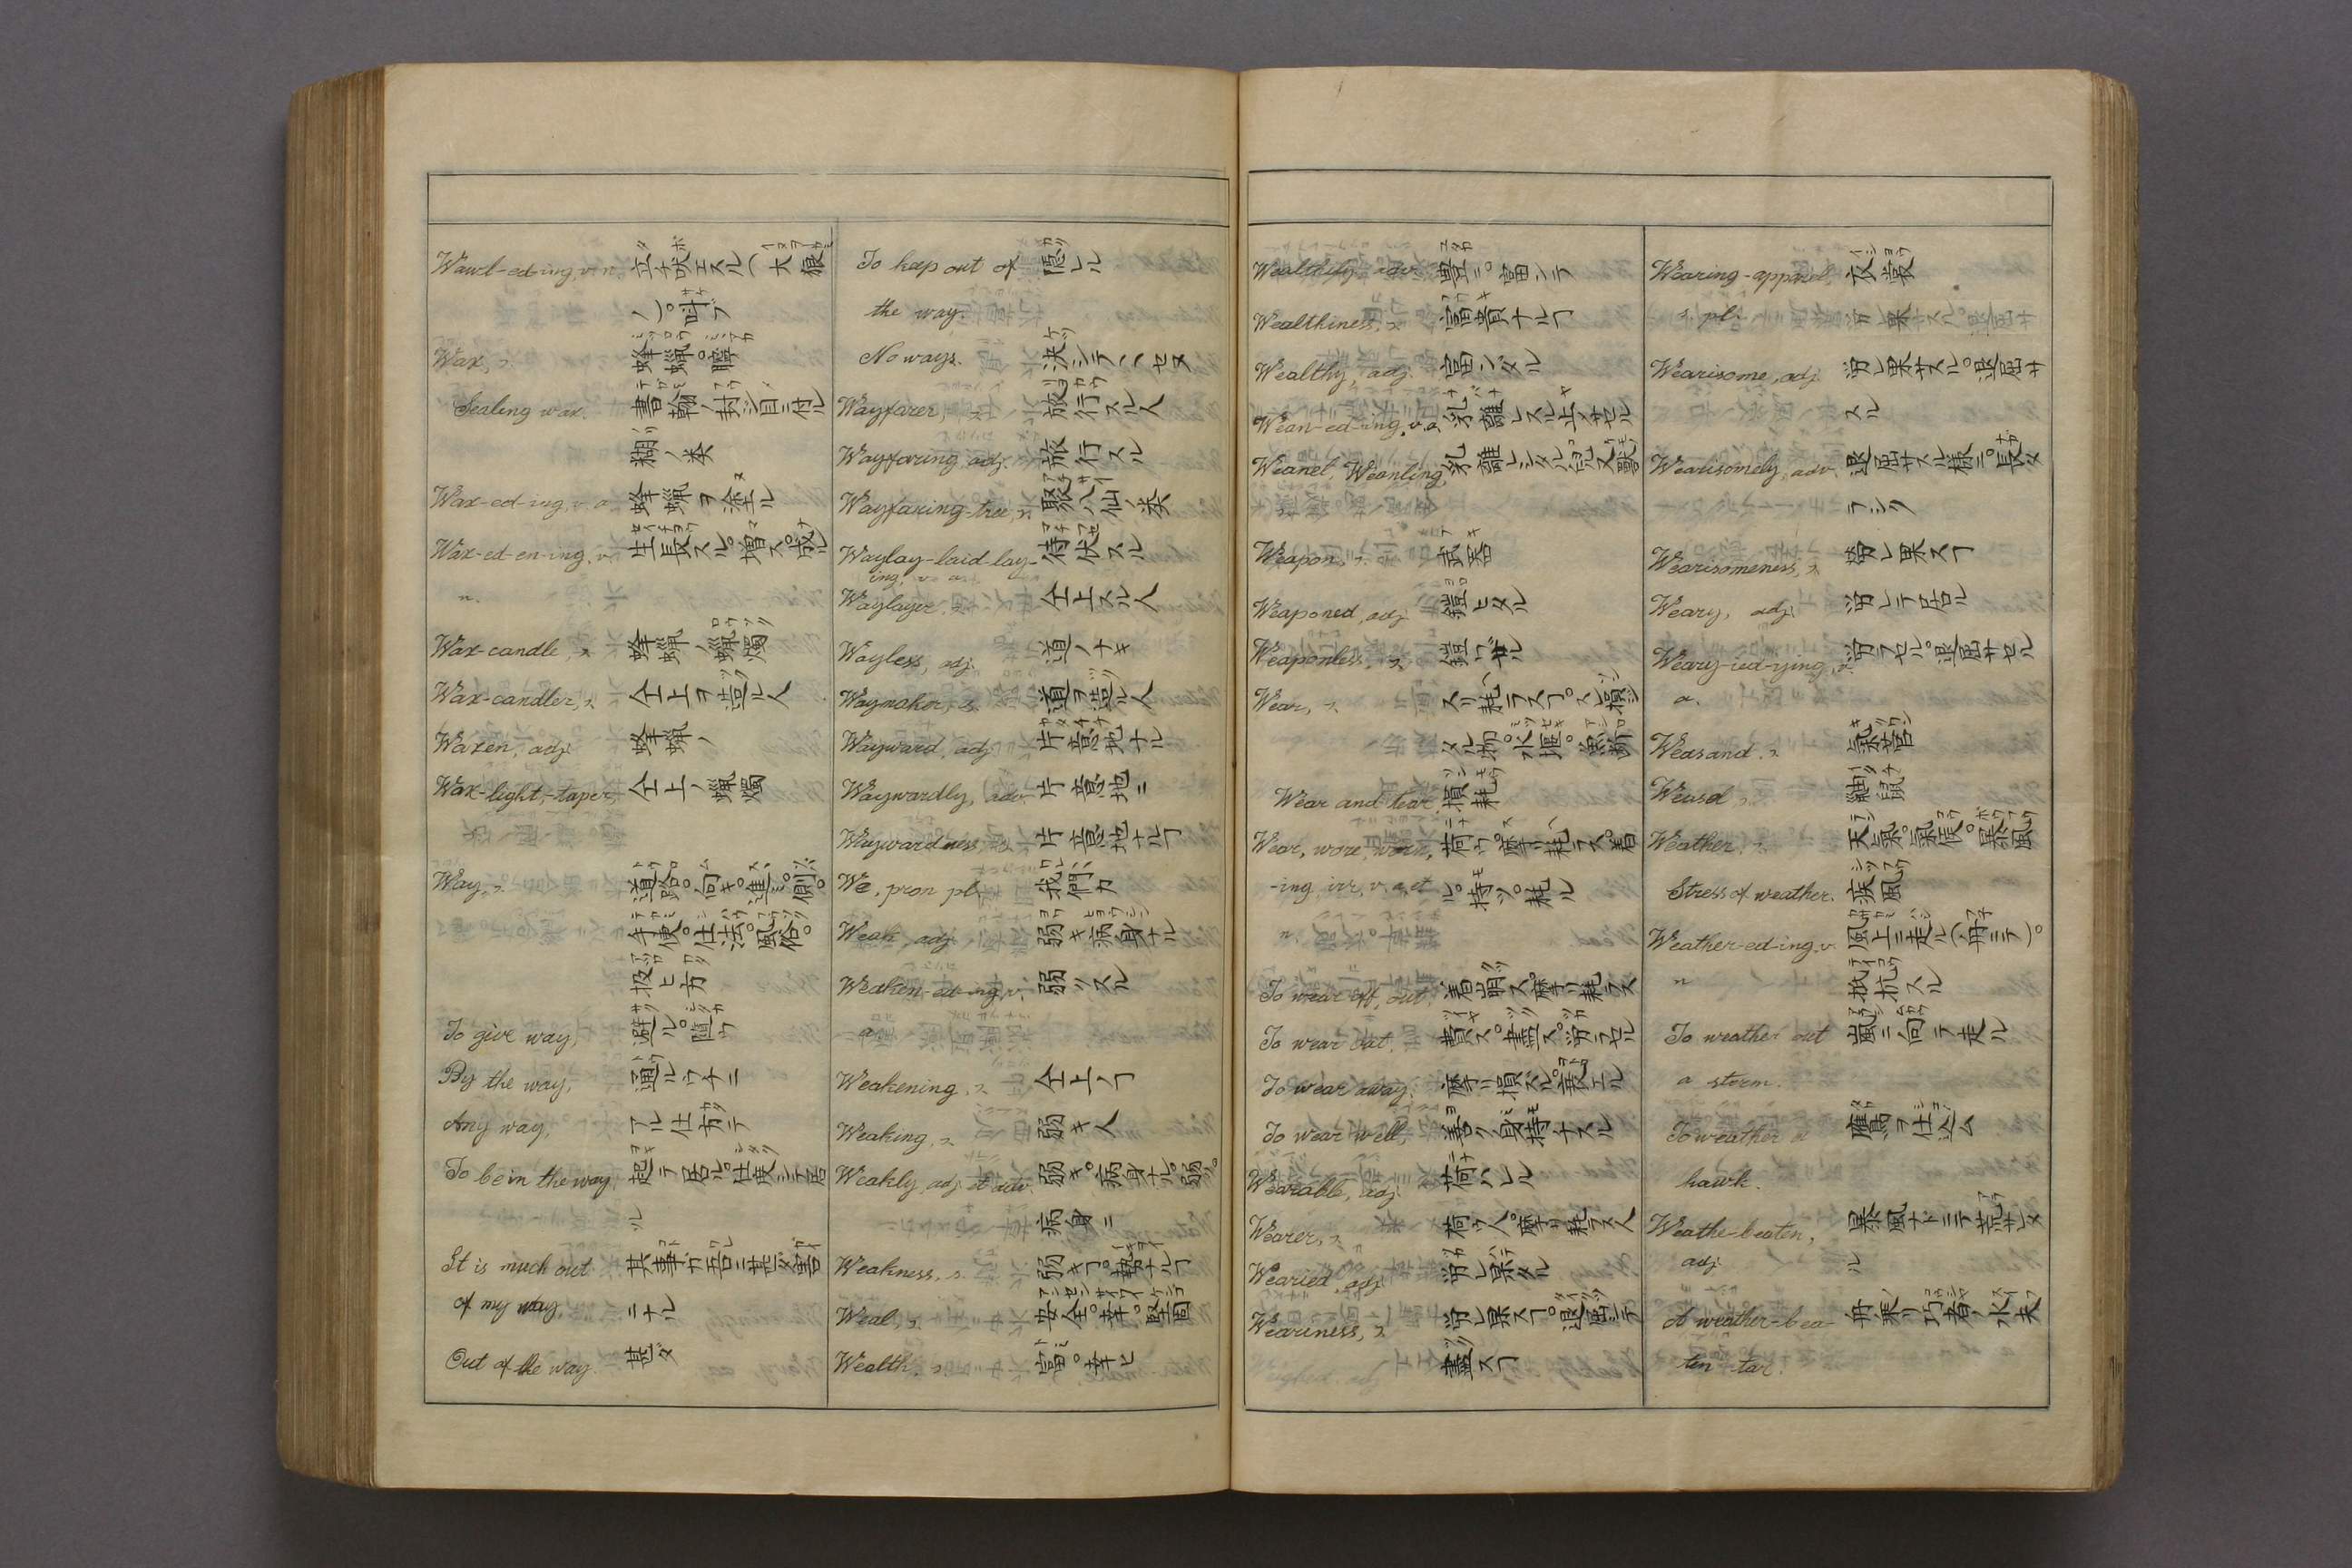 Wawl-ed-ing, v. n. 立チ吠エスル(犬狼
ノ)。叫ブ
Wax, s. 蜂蝋。
Sealing wax. 書翰ノ封ジ目ニ付ル
糊ノ类
Wax-ed-ing, v. a. 蜂蝋ヲ塗ル
Wax-ed-en-ing, v. 生長スル。增ス。成ル
n.
Wax-candle, s. 蜂蝋ノ蝋燭
Wax-candler, s. 仝上ヲ造ル人
Waxen, adj. 蜂蝋ノ
Wax-light,-taper, 仝上ノ蝋燭
Way, s. 道路。向キ。進ミ。側。
手便。仕法。風俗。
扱ヒ方
To give way, 避ル。
By the way, 通ルウチニ
Any way, アル仕方テ
To be in the way, 起テ居ル。仕度シテ居
ル
It is much out 其事ガ吾ニ甚ダ害
of my way, ニナル
Out of the way. 甚ダ
To keep out of 隠ヒル
the way.
No ways. 決シテ
Wayfarer, s. 旅行スル人
Wayfaring, adj. 旅行スル
Wayfaring-tree, s. 聚八仙ノ类
Waylay-laid-lay- 待伏スル
ing, v. a.
Waylayer, s. 仝上スル人
Wayless, adj. 道ノナキ
Waymaker, s. 道ヲ造ル人
Wayward, adj. 片意地ナル
Waywardly, adv. 片意地ニ
Waywardness, s. 片意地ナルヿ
We, pron. pl. 我們カ
Weak, adj. 弱キ病身ナル
Weaken-ed-ing, v. 弱ツスル
a.
Weakening, s. 仝上ノヿ
Weaking, s. 弱キ人
Weakly, adj. et adv. 弱キ。病身ナル。弱ク。
病身ニ
Weakness, s. 弱キヿ。
Weal, s. 安全。幸。堅固
Wealth, s. 富。幸ヒ
Wealthily, adv. 豊ニ。富ンテ
Wealthiness, s. 富貴ナルヿ
Wealthy, adj. 富ンダル
Wean-ed-ing, v. a. 乳離レスル
Weanel, Weanling, 乳離レシタル
Weapon, s. 武器
Weaponed, adj. 鎧ヒタル
Weaponless, s. 鎧ハザル
Wear, s. スリ耗ラスヿ。
水堰。魚断
Wear and tear 損耗
Wear, wore, worn, 荷ウ。摩リ耗ラス。着
-ing, irr, v. a. et ル。持ツ。耗ル
n.
To wear off, out, 着崩ス。摩リ耗ラス
To wear out, 費ス。盡ス。労ラセル
To wear away. 摩リ損ズル。衰エル
To wear well, 善ク身持ナスル
Wearable, adj. 荷ハレル
Wearer, s. 荷ウ人。摩リ耗ラス人
Wearied, adj. 労レ果タル
Weariness, s. 労レ果スヿ。退屈シテ
盡スヿ
Wearing-apparel, 衣裳
s. pl.
Wearisome, adj. 労レ果サスル。退屈サ
スル
Wearisomely, adv. 退屈サスル様ニ。長タ
ラシク
Wearisomeness, s. 労レ果スヿ
Weary, adj. 労レテ居ル
Weary-ied-ying, v. 労ラセル。退屈サセル
a.
Weasand, s. 氣管
Weasel, s. 鼬鼠
Weather, s. 天氣。氣候。暴風
Stress of weather. 疾風
Weather-ed-ing, v. 風上ニ走ル(舟ニテ)。
n. 抵抗スル
To weather out 嵐ニ向テ走ル
a storm.
To weather a 鷹ヲ仕込ム
hawk.
Weathe-beaten, 暴風ナドニテ荒サレタ
adj. ル
A weather-bea- 舟乗リ巧者ノ水夫
ten tar.